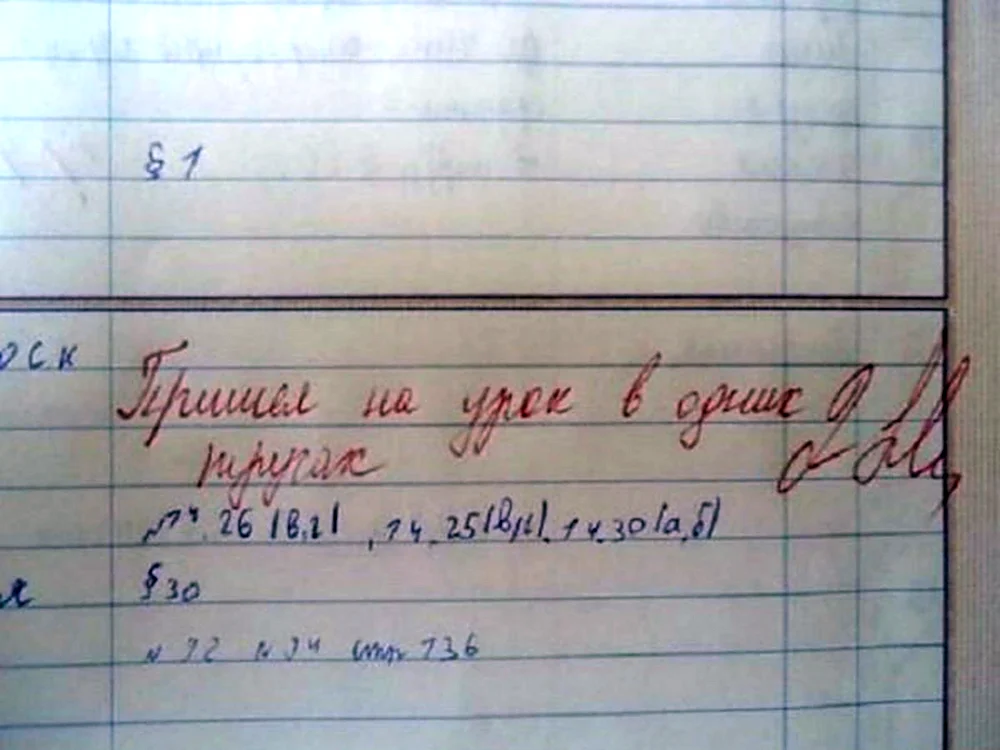 § 1
оск
Пришел на урок в одних 2
трусах
№14.26 (в,г), 14.25(в,г), 14.30(а,б)
я §30
№ 12 № 14 стр 136